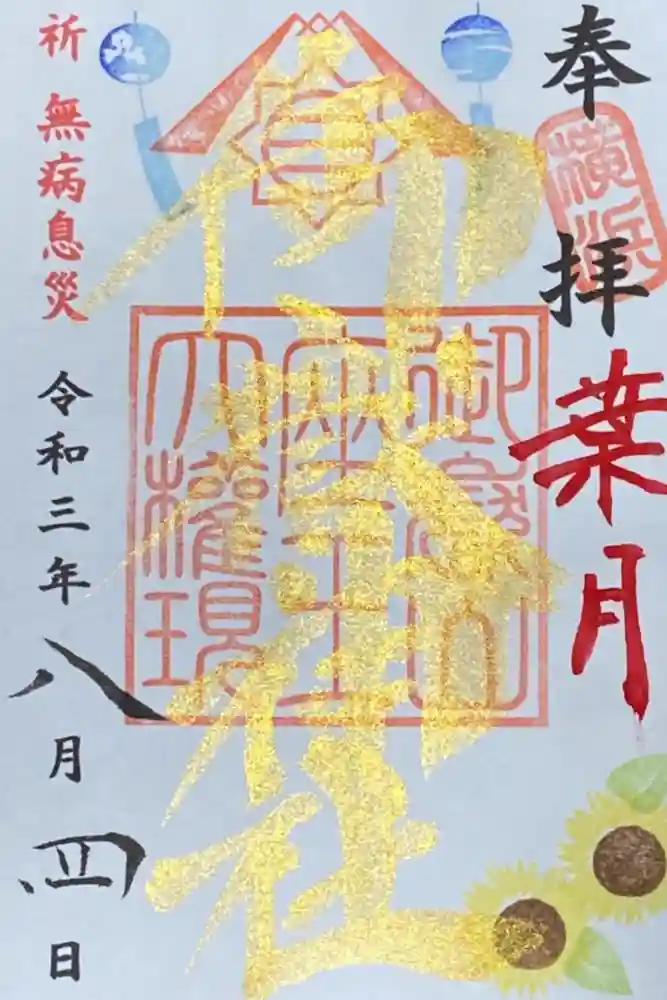 奉拝
横浜
葉月
御嶽社
大權現
祈 無病息災
令和三年八月四日